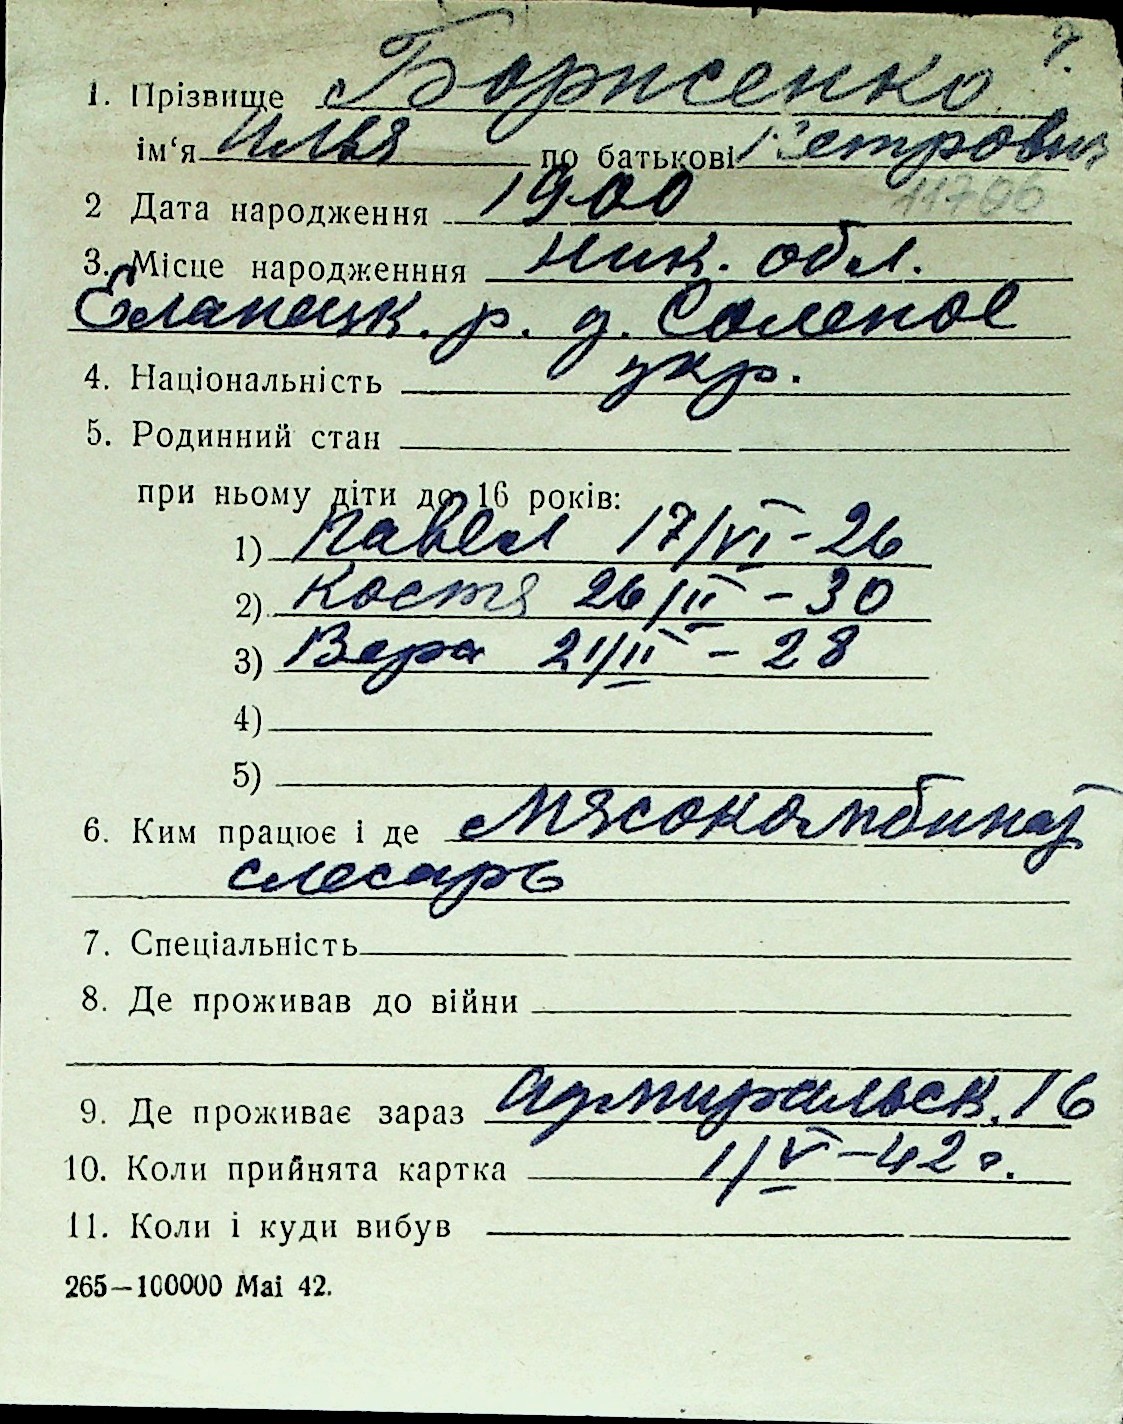 7.
1. Прізвище Борисенко
ім‘я Илья по батькові Петрович
11700
2 Дата народження 1900
3. Місце народженння ник. обл.
Еланецк. р. д. Соленое
4. Національність укр.
5. Родинний стан
при ньому діти до 16 років:
1) Павел 17/VI-26
2) Костя 26/II-30
3) Вера 21/II-28
4)
5)
6. Ким працює і де Мясокомбинат
слесарь
7. Спеціальність
8. Де проживав до війни
9. Де проживає зараз Адмиральск. 16
10. Коли прийнята картка 1/V-42 г.
11. Коли і куди вибув
265—100000 Mai 42.